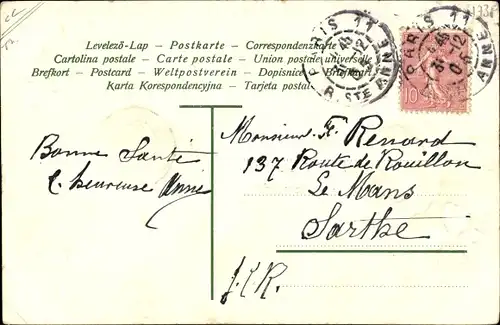 Levelező-Lap — Postkarte — Correspondenzkarte
Cartolina postale — Carte postale — Union postale universelle
Brefkort — Postcard — Weltpostverein — Dopisnice — Briefkaart
Karta Korespondencyjna — Tarjeta postal
PARIS 11
R. STE ANNE
PARIS 11
ANNE
10
Monsieur F. Renard
137 Route de Rouillon
Le Mans
Sarthe
Bonne Santé
& heureuse Année